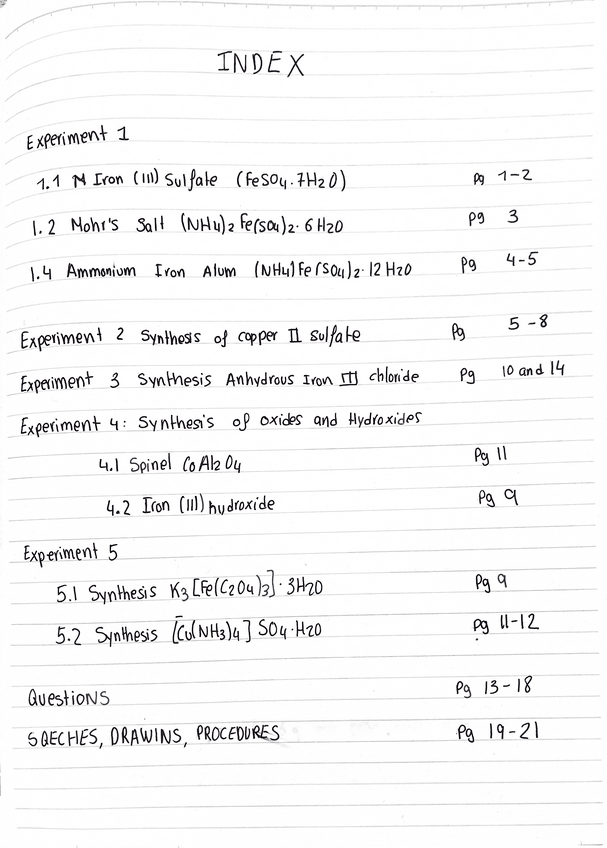 INDEX
Experiment 1
1.1 Iron (III) Sulfate (FeSO4.7H2O) pg 1-2
1.2 Mohr's Salt (NH4)2 Fe(SO4)2.6H2O pg 3
1.4 Ammonium Iron Alum (NH4)Fe(SO4)2.12H2O pg 4-5
Experiment 2 Synthesis of copper II sulfate Pg 5-8
Experiment 3 Synthesis Anhydrous Iron III chloride Pg 10 and 14
Experiment 4: Synthesis of oxides and Hydroxides
4.1 Spinel CoAl2O4 Pg 11
4.2 Iron (III) hydroxide Pg 9
Experiment 5
5.1 Synthesis K3[Fe(C2O4)3].3H2O Pg 9
5.2 Synthesis [Cu(NH3)4]SO4.H2O Pg 11-12
Questions Pg 13-18
SQECHES, DRAWINS, PROCEDURES Pg 19-21